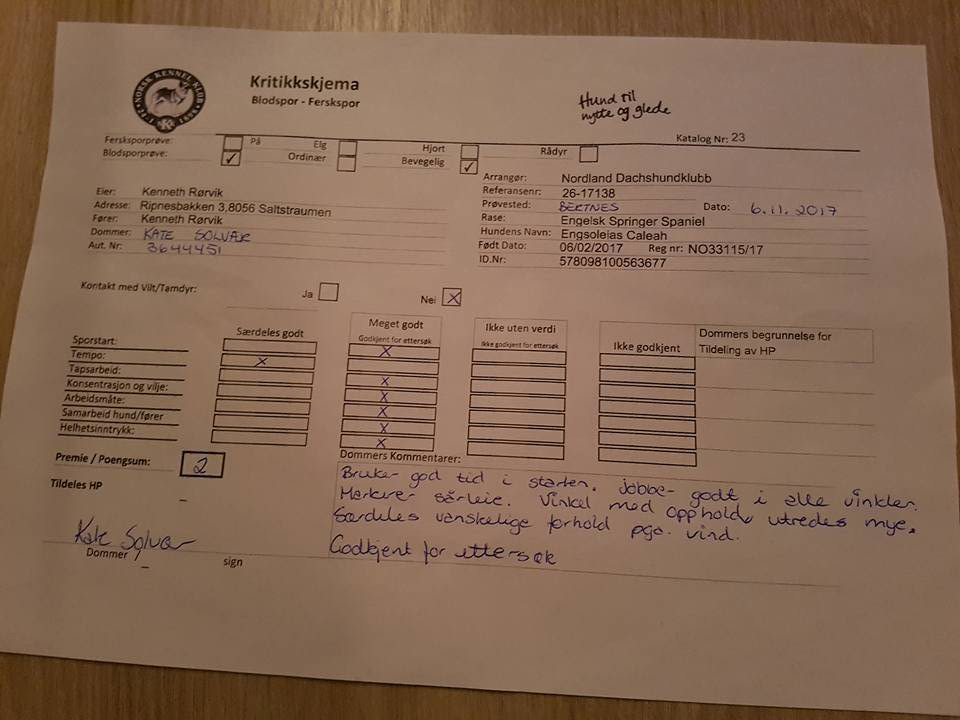 NORSK KENNEL KLUB
Kritikkskjema
Blodspor - Ferskspor
Hund til
nytte og glede
Katalog Nr: 23
Fersksporprøve: På Elg Hjort Rådyr
Blodsporprøve: ✓ Ordinær Bevegelig ✓
Eier: Kenneth Rørvik
Adresse: Ripnesbakken 3,8056 Saltstraumen
Fører: Kenneth Rørvik
Dommer: KATE SOLVÆR
Aut. Nr: 3644451
Arrangør: Nordland Dachshundklubb
Referansenr: 26-17138
Prøvested: BERTNES Dato: 6.11.2017
Rase: Engelsk Springer Spaniel
Hundens Navn: Engsoleias Caleah
Født Dato: 06/02/2017 Reg nr: NO33115/17
ID.Nr: 578098100563677
Kontakt med Vilt/Tamdyr: Ja Nei X
Særdeles godt Meget godt Ikke uten verdi Ikke godkjent Dommers begrunnelse for
Godkjent for ettersøk Ikke godkjent for ettersøk Tildeling av HP
Sporstart: X
Tempo: X
Tapsarbeid: X
Konsentrasjon og vilje: X
Arbeidsmåte: X
Samarbeid hund/fører X
Helhetsinntrykk: X
Premie / Poengsum: 2
Tildeles HP
Dommers Kommentarer:
Bruker god tid i starten. Jobber godt i alle vinkler.
Markerer sårleie. Vinkel med opphold utredes mye.
Særdeles vanskelige forhold pga. vind.
Godkjent for ettersøk
Kate Solvær
Dommer sign